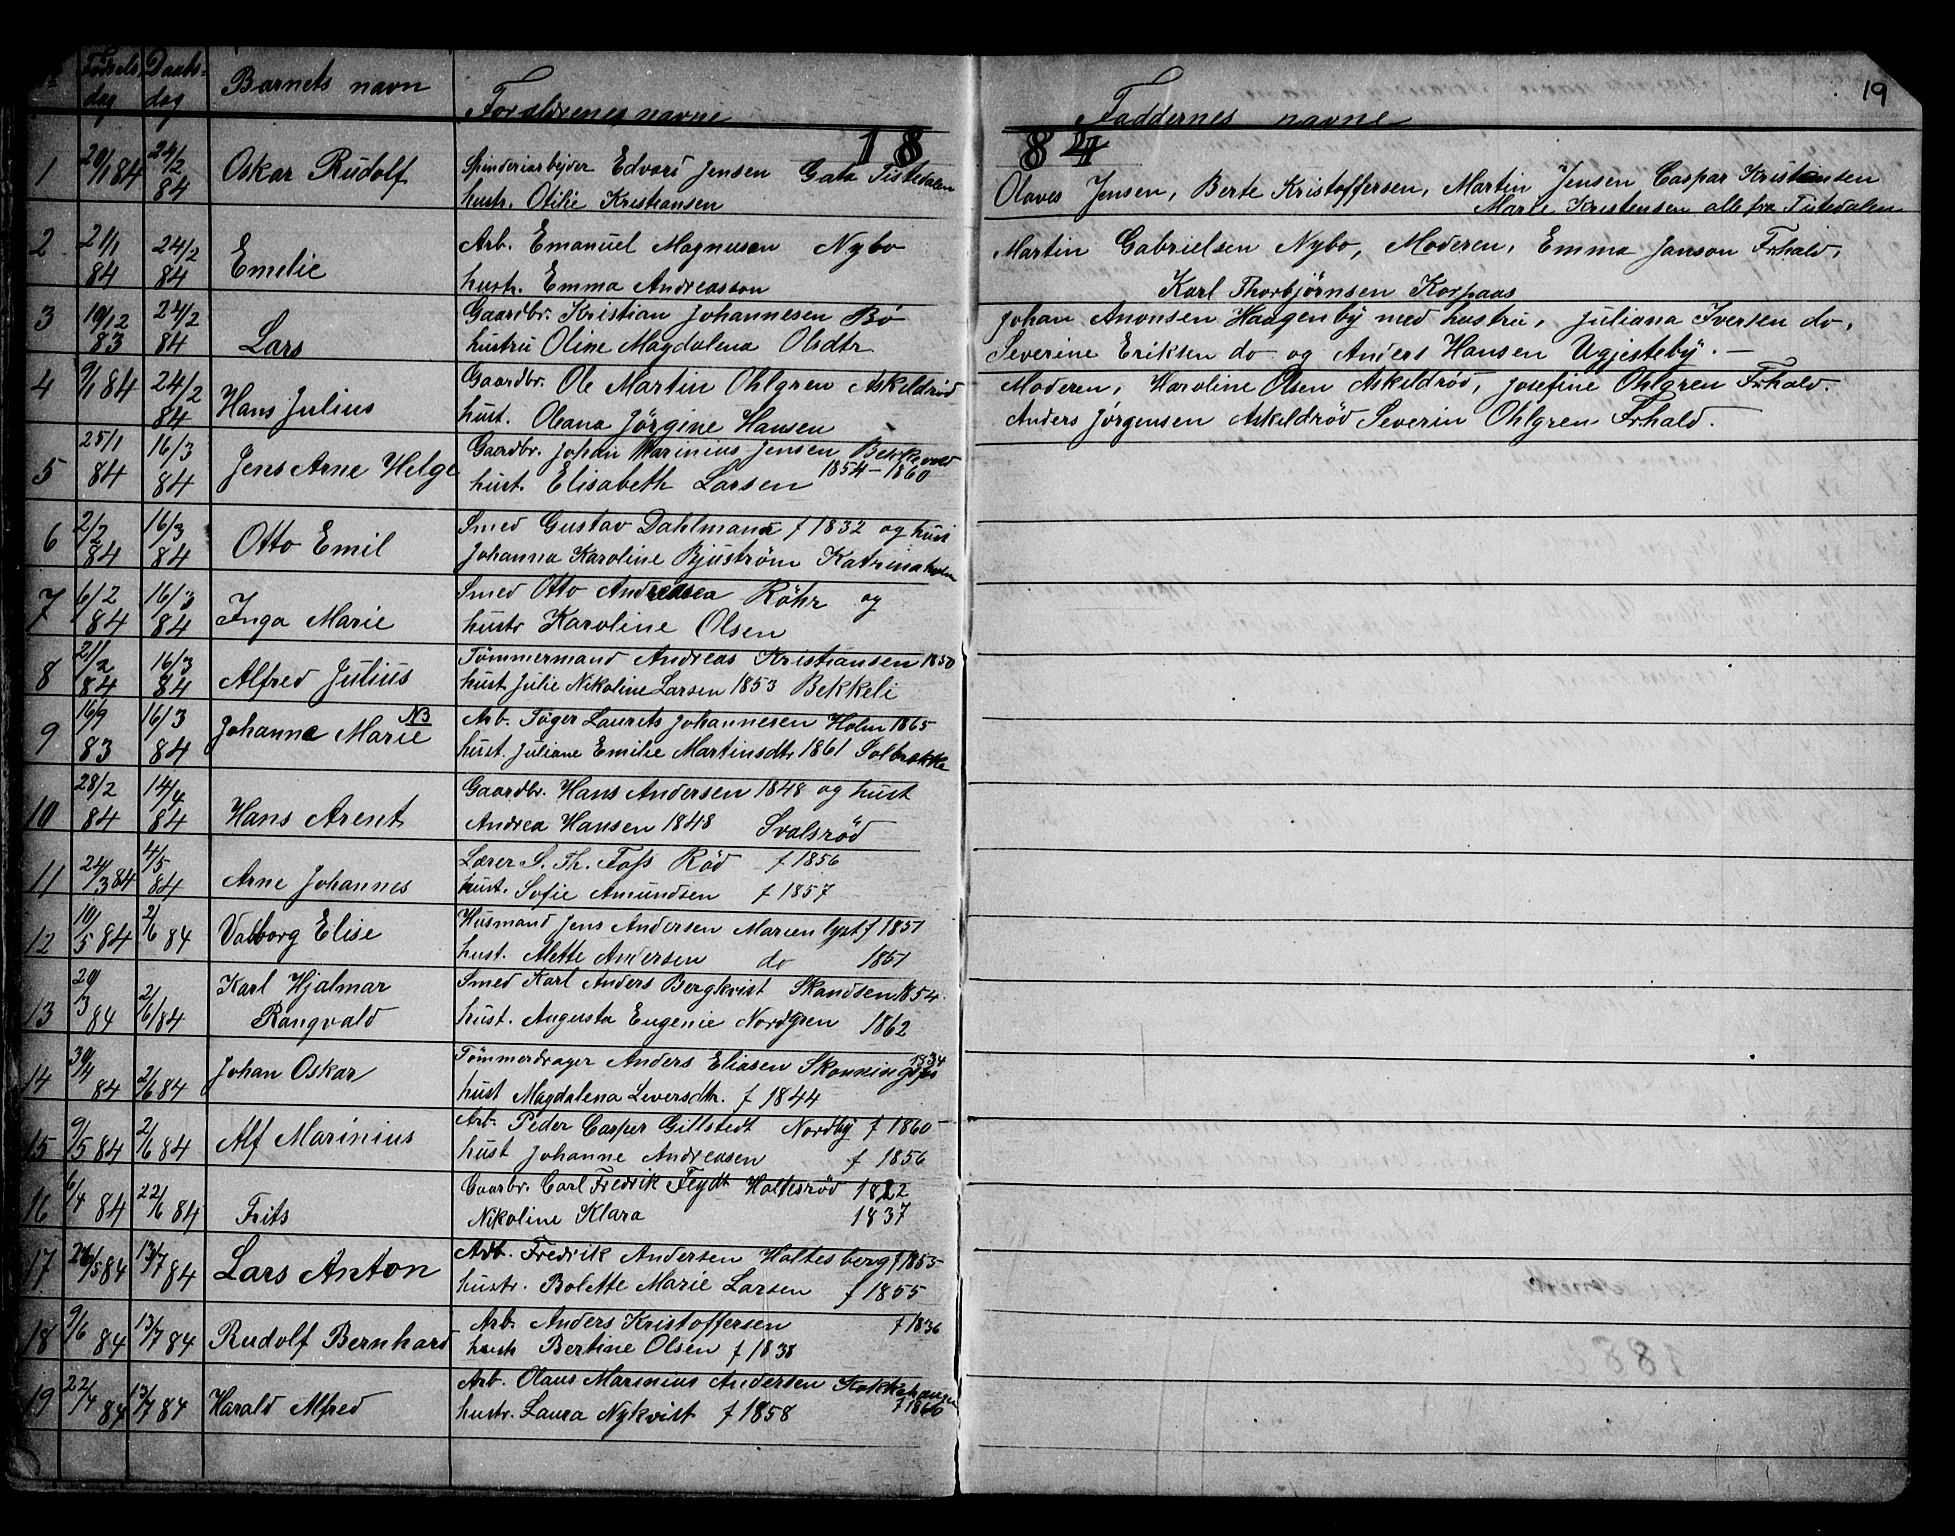 19
No Fødsels dag Daabs- dag Barnets navn Forældrenes navne Faddernes navne
1884
1 20/1 84 24/2 84 Oskar Rudolf Spinderiarbejder Edvard Jensen Gata Tistedalen
hustr. Otilie Kristiansen
Olaves Jensen, Berte Kristoffersen, Martin Jensen Caspar Kristiansen
Marie Kristensen alle fra Tistedalen
2 21/1 84 24/2 84 Emelie Arb. Emanuel Magnusen Nybo
hustr. Emma Andreasson
Martin Gabrielsen Nybo, Moderen, Emma Janson Frhald,
Karl Thorbjørnsen Korpaas
3 19/12 83 24/2 84 Lars Gaardbr. Kristian Johannesen Bø
hustru Oline Magdalena Olsdtr
Johan Anonsen Haagenby med hustru, Juliana Iversen do,
Severine Eriksen do og Anders Hansen Ugjesteby. —
4 9/1 84 24/2 84 Hans Julius Gaardbr. Ole Martin Ohlgren Askeldrød
hust. Oleana Jørgine Hansen
Moderen, Karoline Olsen Askildrød, Josefine Ohlgren Frhald.
Anders Jørgensen Askildrød Severin Ohlgren Frhald.
5 25/1 84 16/3 84 Jens Arne Helge Gaardbr. Johan Marinius Jensen
hust. Elisabeth Larsen 1854 - 1860
6 2/2 84 16/3 84 Otto Emil Smed Gustav Dahlmann f 1832 og hust
Johanna Karoline Bjuström Katrinaholm
7 6/2 84 16/3 84 Inga Marie Smed Otto Andreasen Röhr og
hustr Karoline Olsen
8 21/2 84 16/3 84 Alfred Julius Tømmermand Andreas Kristiansen 1850
hust Julie Nikoline Larsen 1853 Bekkeli
9 16/9 83 16/3 84 Johanne Marie NB Arb. Tøger Laurets Johannesen Holm 1865
hust. Juliane Emilie Martinsdtr 1861 Solbrække
10 28/2 84 14/4 84 Hans Arent Gaardbr. Hans Andersen 1848 og hust
Andrea Hansen 1848 Svalsrød
11 24/3 84 4/5 84 Arne Johannes Lærer S. Th. Foss Rød f 1856
hust. Sofie Amundsen f 1857
12 10/5 84 2/6 84 Valborg Elise Husmand Jens Andersen Marienlyst f 1851
hust. Alette Andersen do 1851
13 20/3 84 2/6 84 Karl Hjalmar Smed Karl Anders Bergkvist Skandsen 1854.
Rangvald hust. Augusta Eugenie Nordgren 1862
14 30/4 84 2/6 84 Johan Oskar Tømmerdrager Anders Eliasen 1834
hust Magdalena Leversdtr. f 1844
15 9/5 84 2/6 84 Alf Marinius Arb. Peder Casper Gillstedt Nordby f 1860
hust Johanne Andreasen f 1856
16 6/4 84 22/6 84 Frits Gaarbr. Carl Fredrik Feydt Holtesrød 1822
Nikoline Klara 1837
17 26/5 84 13/7 84 Lars Anton Arb. Fredrik Andersen Holtesberg f 1853
hustr. Bolette Marie Larsen f 1855
18 9/6 84 13/7 84 Rudolf Bernhard Arb. Anders Kristoffersen f 1836
hustr Bertine Olsen f 1838
19 22/4 84 13/7 84 Harald Alfred Arb. Olaus Marinius Andersen Kokkehaugen f 1860
hustr. Laura Nykvist f 1858